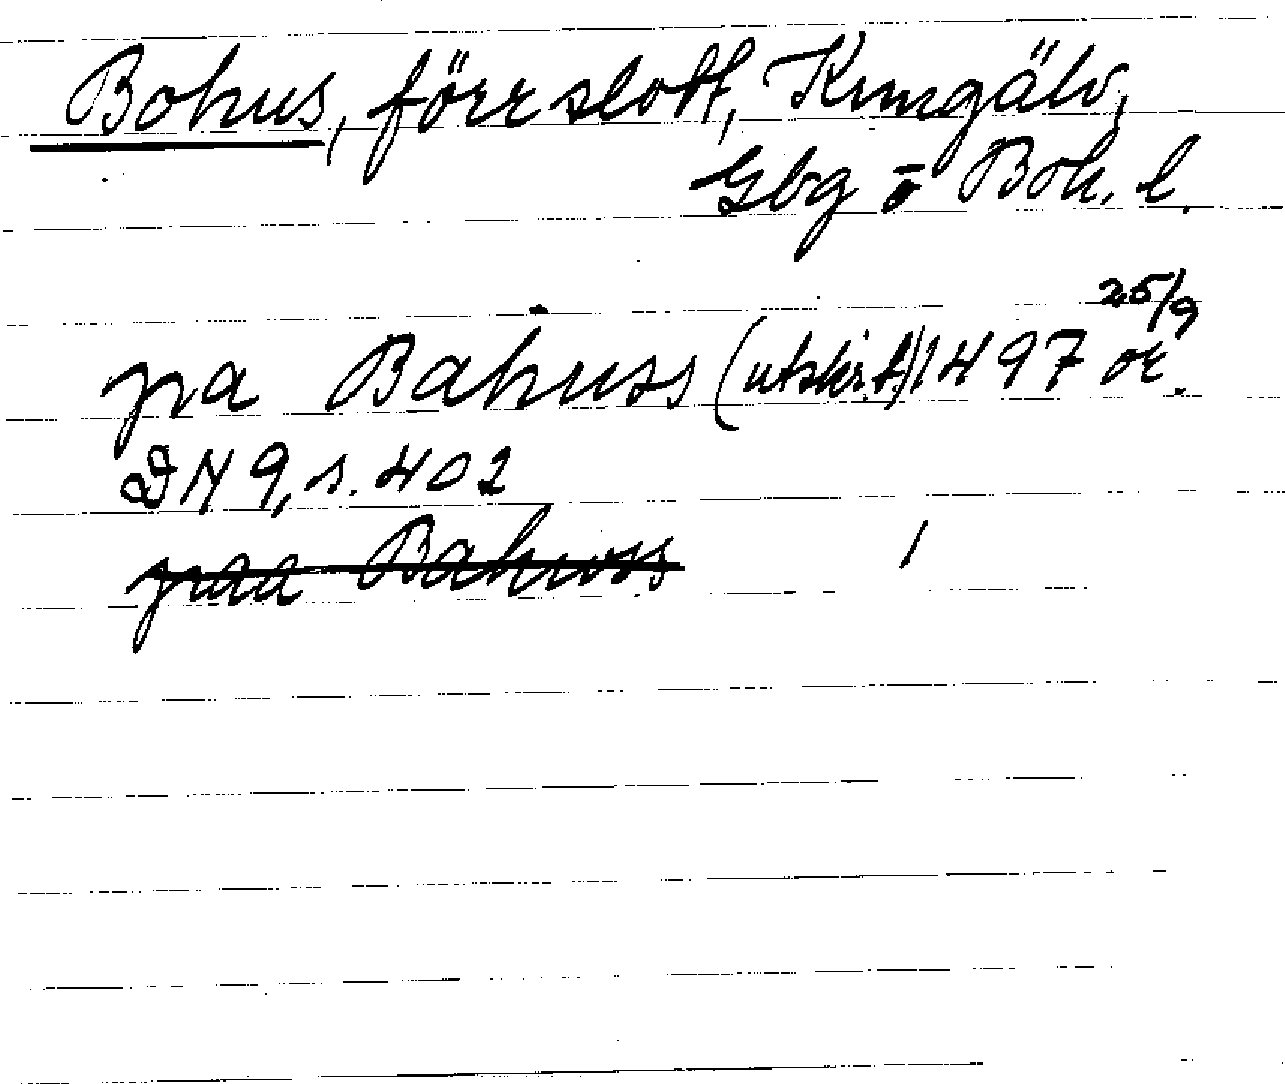 Bohus, förr slott, Kungälv,
Gbg o Boh. l.
pa Bahuss (utskr.t) 1497 25/9 or.
DN 9, s. 402
paa Bahuss